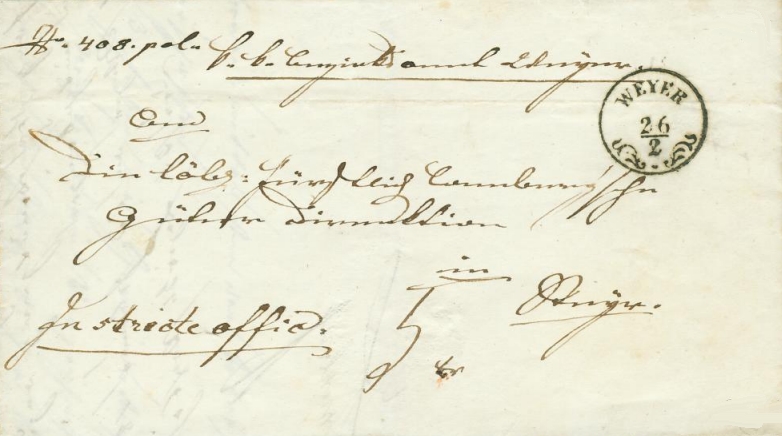 Nr. 408. pol. k. k. Bezirksamt Weyer.
WEYER
26
2
An
Die löbl: fürstlich Lamberg'sche
Güter Direktion
in
Steyr.
In stricte offic:
5